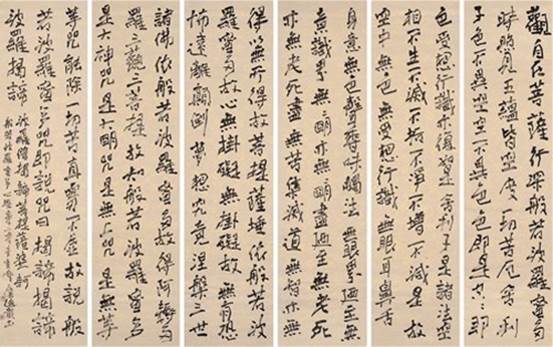 觀自在菩薩行深般若波羅蜜多
時照見五蘊皆空度一切苦厄舍利
子色不異空空不異色色即是空〻即
色受想行識亦復如是舍利子是諸法空
相不生不滅不垢不淨不增不減是故
空中無色無受想行識無眼耳鼻舌
身意無色聲香味觸法無眼界乃至無
意識界無無明亦無無明盡乃至無老死
亦無老死盡無苦集滅道無智亦無
得以無所得故菩提薩埵依般若波
羅蜜多故心無掛礙無掛礙故無有恐
怖遠離顛倒夢想究竟涅槃三世
諸佛依般若波羅蜜多故得阿耨多
羅三藐三菩提故知般若波羅蜜多
是大神咒是大明咒是無上咒是無等
等咒能除一切苦真實不虛故說般
若波羅蜜多咒即說咒曰揭諦揭諦
波羅揭諦波羅僧揭諦菩提薩婆訶